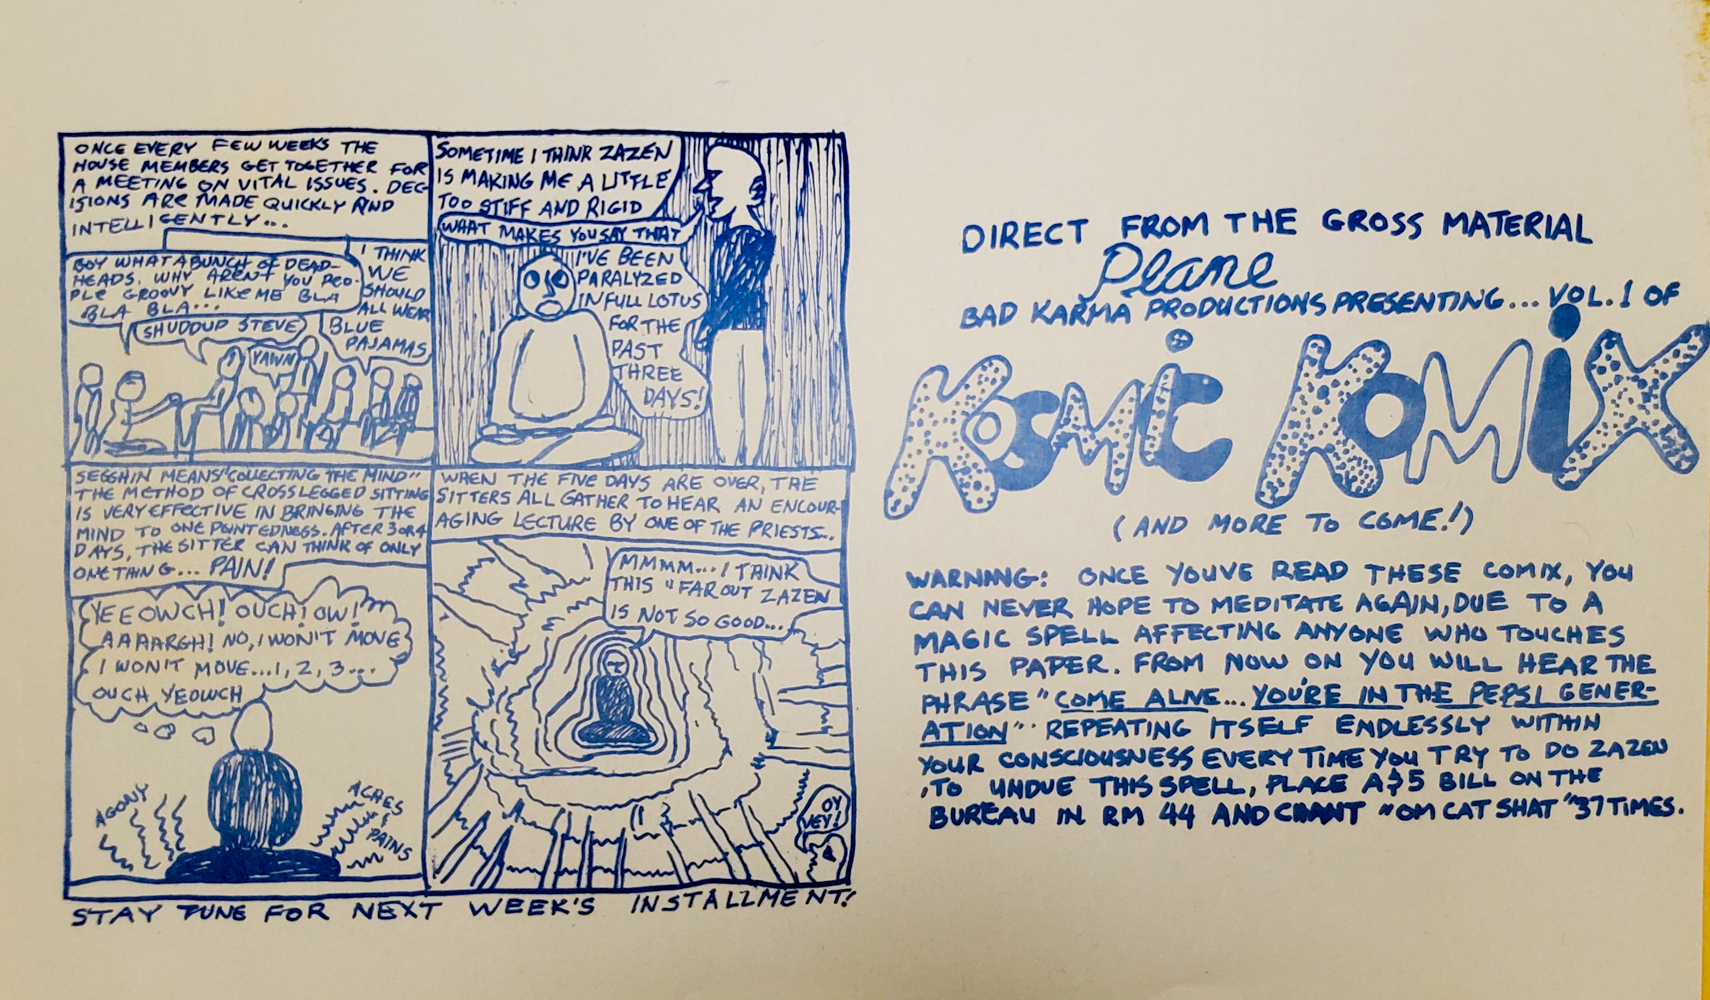 ONCE EVERY FEW WEEKS THE
HOUSE MEMBERS GET TOGETHER FOR
A MEETING ON VITAL ISSUES. DEC-
ISIONS ARE MADE QUICKLY AND
INTELLIGENTLY...
BOY WHAT A BUNCH OF DEAD-
HEADS. WHY ARENT YOU PEO-
PLE GROOVY LIKE ME BLA
BLA BLA...
SHUDDUP STEVE
YAWN
I THINK
WE
SHOULD
ALL WEAR
BLUE
PAJAMAS
SOMETIME I THINK ZAZEN
IS MAKING ME A LITTLE
TOO STIFF AND RIGID
WHAT MAKES YOU SAY THAT
I'VE BEEN
PARALYZED
IN FULL LOTUS
FOR THE
PAST
THREE
DAYS!
SESSHIN MEANS "COLLECTING THE MIND"
THE METHOD OF CROSSLEGGED SITTING
IS VERY EFFECTIVE IN BRINGING THE
MIND TO ONE POINTEDNESS. AFTER 3 OR 4
DAYS, THE SITTER CAN THINK OF ONLY
ONE THING... PAIN!
YEEOWCH! OUCH! OW!
AAAARGH! NO, I WON'T MOVE
I WON'T MOVE...1, 2, 3...
OUCH YEOWCH
AGONY
ACHES
&
PAINS
WHEN THE FIVE DAYS ARE OVER, THE
SITTERS ALL GATHER TO HEAR AN ENCOUR-
AGING LECTURE BY ONE OF THE PRIESTS...
MMMM... I THINK
THIS "FAR OUT ZAZEN
IS NOT SO GOOD...
OY
VEY!
STAY TUNE FOR NEXT WEEK'S INSTALLMENT!
DIRECT FROM THE GROSS MATERIAL
Plane
BAD KARMA PRODUCTIONS PRESENTING... VOL. 1 OF
KOSMIC KOMIX
(AND MORE TO COME!)
WARNNG: ONCE YOUVE READ THESE COMIX, YOU
CAN NEVER HOPE TO MEDITATE AGAIN, DUE TO A
MAGIC SPELL AFFECTING ANYONE WHO TOUCHES
THIS PAPER. FROM NOW ON YOU WILL HEAR THE
PHRASE "COME ALIVE... YOU'RE IN THE PEPSI GENER-
ATION" REPEATING ITSELF ENDLESSLY WITHIN
YOUR CONSCIOUSNESS EVERY TIME YOU TRY TO DO ZAZEN
,TO UNDUE THIS SPELL, PLACE A $5 BILL ON THE
BUREAU IN RM 44 AND CHANT "OM CAT SHAT" 37 TIMES.